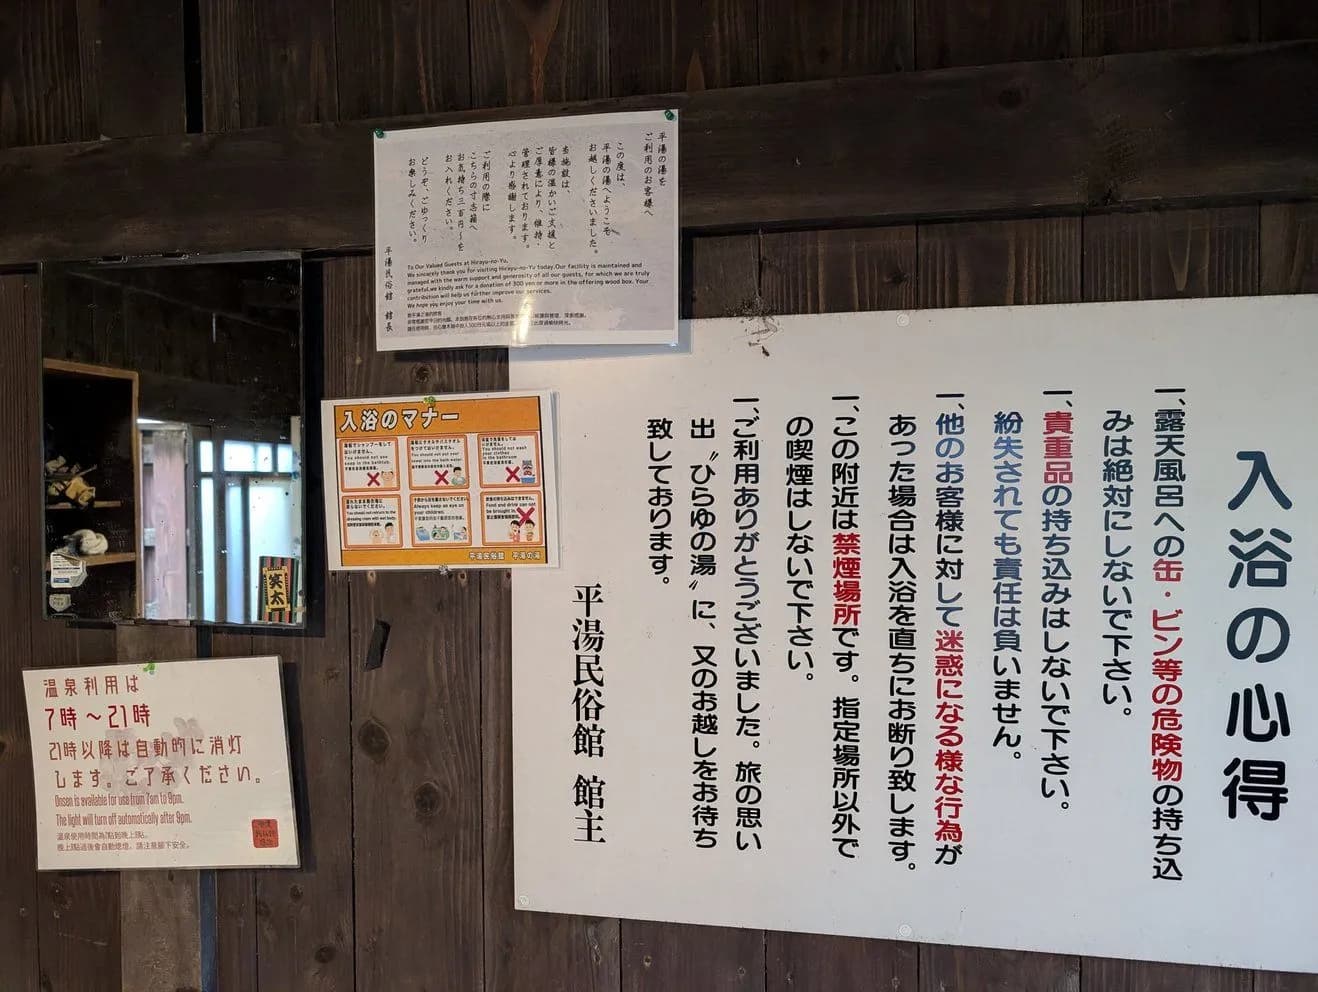 入浴の心得
一、露天風呂への缶・ビン等の危険物の持ち込
みは絶対にしないで下さい。
一、貴重品の持ち込みはしないで下さい。
紛失されても責任は負いません。
一、他のお客様に対して迷惑になる様な行為が
あった場合は入浴を直ちにお断り致します。
一、この附近は禁煙場所です。指定場所以外で
の喫煙はしないで下さい。
一、ご利用ありがとうございました。旅の思い
出〝ひらゆの湯〟に、又のお越しをお待ち
致しております。
平湯民俗館 館主
平湯の湯を
ご利用のお客様へ
この度は、
平湯の湯へようこそ
お越しくださいました。
当施設は、
皆様の温かいご支援と
ご厚意により、維持・
管理されております。
心より感謝します。
ご利用の際に
こちらの寸志箱へ
お気持ち三百円〜を
お入れください。
どうぞ、ごゆっくり
お楽しみください。
平湯民俗館 館長
To Our Valued Guests at Hirayu-no-Yu,
We sincerely thank you for visiting Hirayu-no-Yu today.Our facility is maintained and
managed with the warm support and generosity of all our guests, for which we are truly
grateful.we kindly ask for a donation of 300 yen or more in the offering wood box. Your
contribution will help us further improve our services.
We hope you enjoy your time with us.
入浴のマナー
You should not use
soap in the bathtub.
You should not put your
towel into the bath water.
You should not wash
your clothes
in the bathroom
You should not return to the
dressing room with wet body.
Always keep an eye on
your children.
Food and drink can not
be brought in.
平湯民俗館 平湯の湯
笑太
温泉利用は
7時〜21時
21時以降は自動的に消灯
します。ご了承ください。
Onsen is available for use from 7am to 9pm.
The light will turn off automatically after 9pm.
温泉使用時間為7點到晚上9點。
晚上9點過後會自動熄燈，請注意腳下安全。